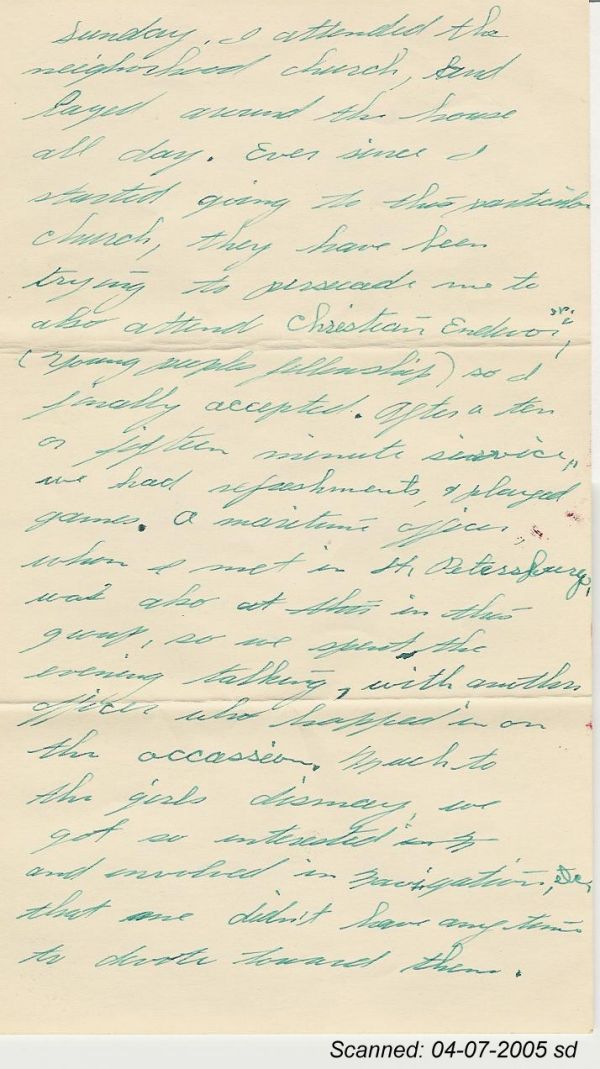 Sunday, I attended the
neighorhood church, and
layed around the house
all day. Ever since I
started going to this particular
church, they have been
trying to persuade me to
also attend Christian Endevor, sp.?
(Young peoples fellowship) so I
finally accepted. After a ten
or fifteen minute service,
we had refreshments, & played
games. A maritime officer
whom I met in St. Petersburg,
was also at this in this
group, so we spent the
evening talking, with another
officer who happed in on
the occassion. Much to
the girls dismay, we
got so interested in
and involved in navigation, etc,
that we didn't have any time
to devote toward them.
Scanned: 04-07-2005 sd